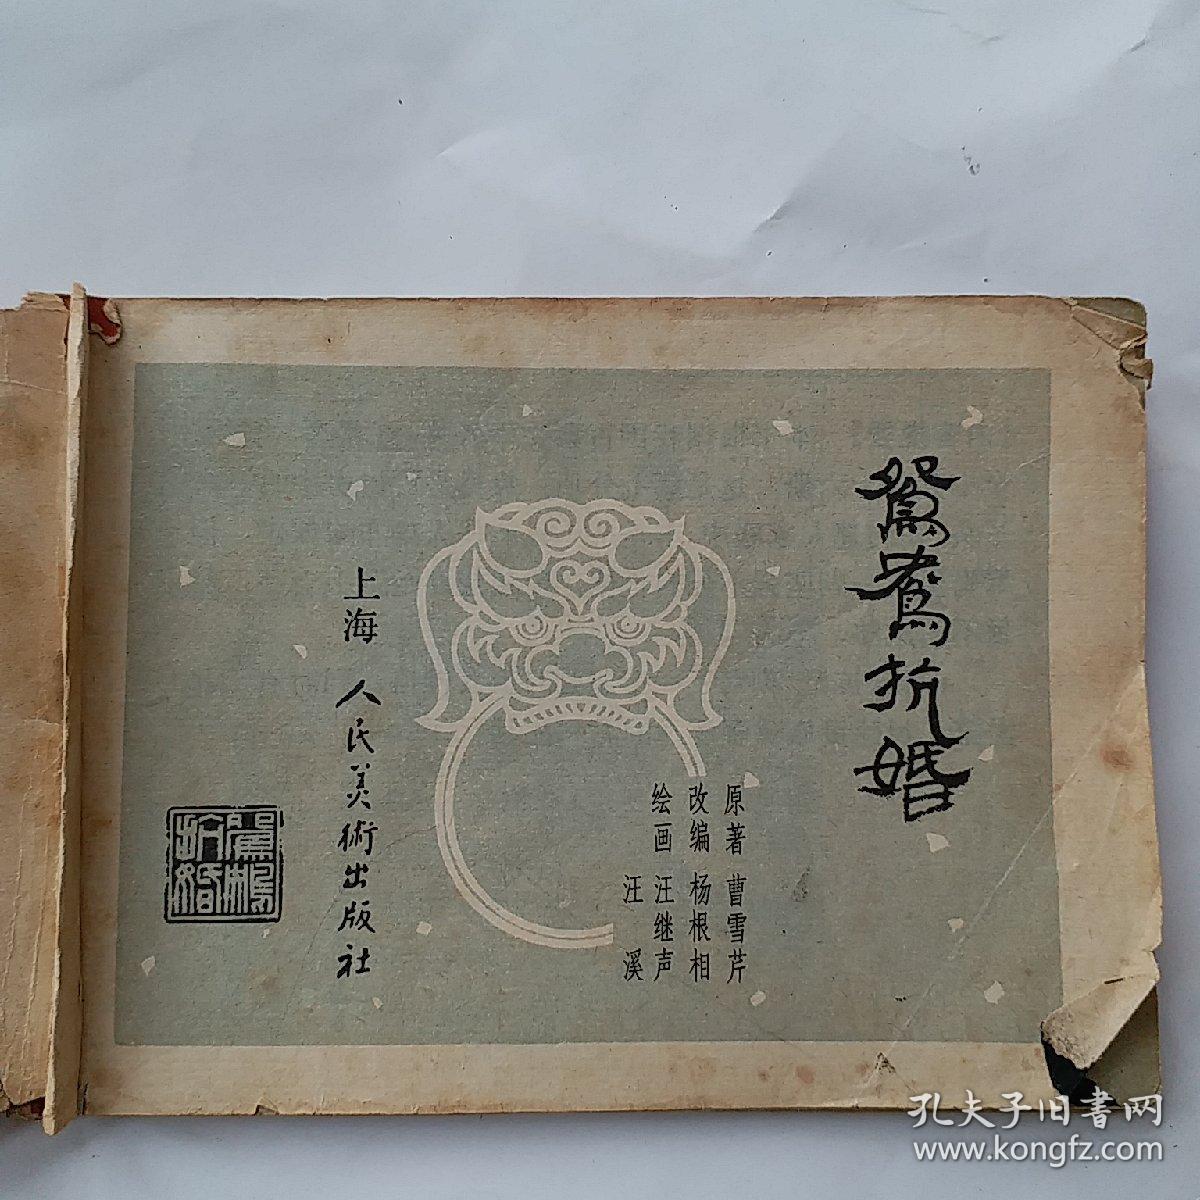 鸳鸯抗婚
原著 曹雪芹
改编 杨根相
绘画 汪继声
汪溪
上海人民美術出版社
鴛鴦抗婚
孔夫子旧書网
www.kongfz.com